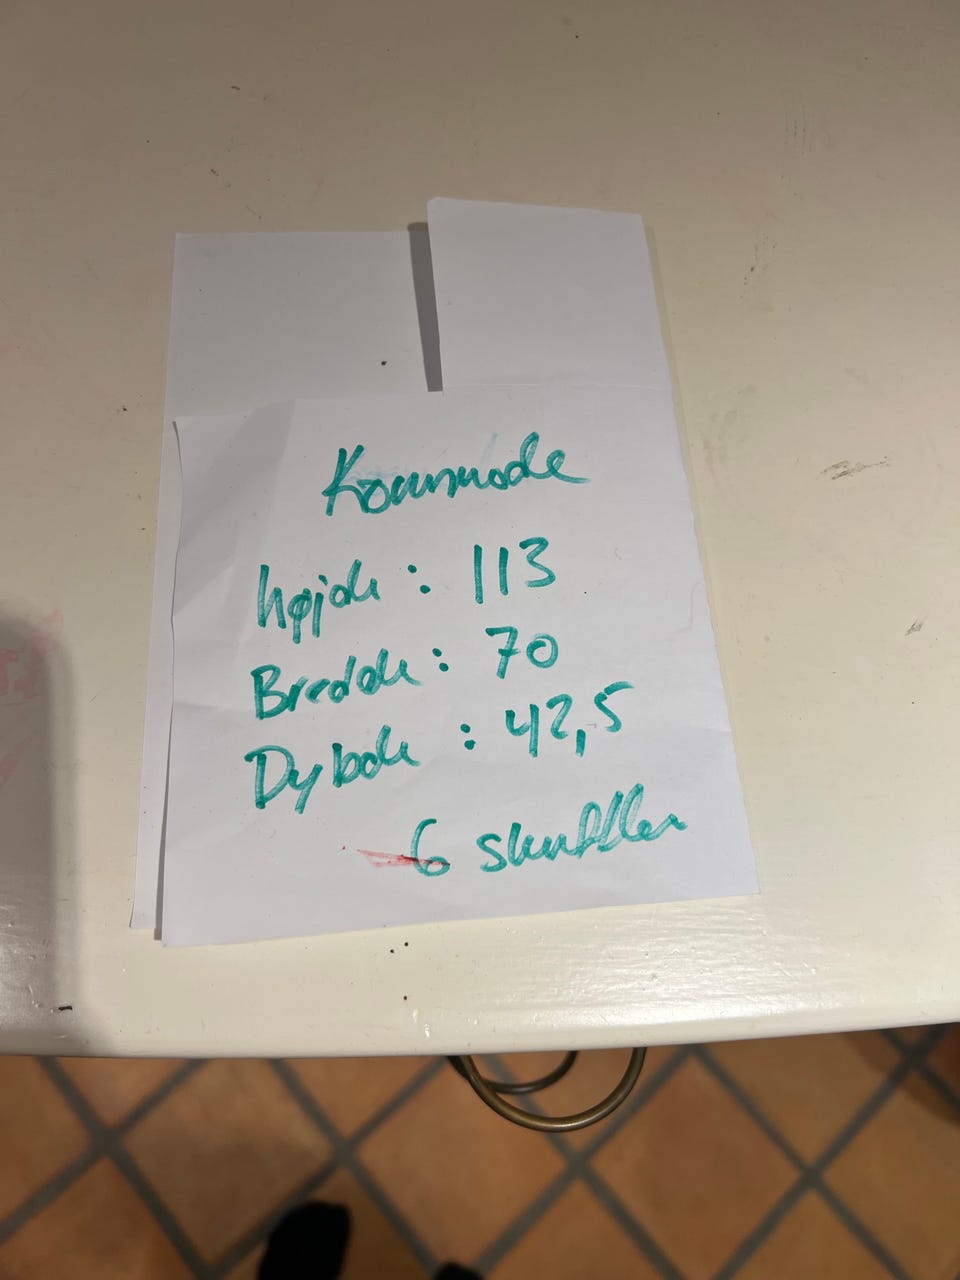 Kommode
højde : 113
Bredde : 70
Dybde : 42,5
6 skuffer